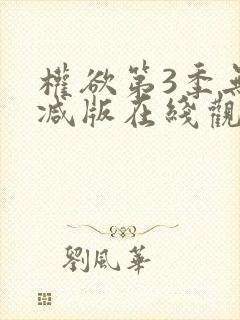 權欲第3季無
减版在綫觀
劉風華